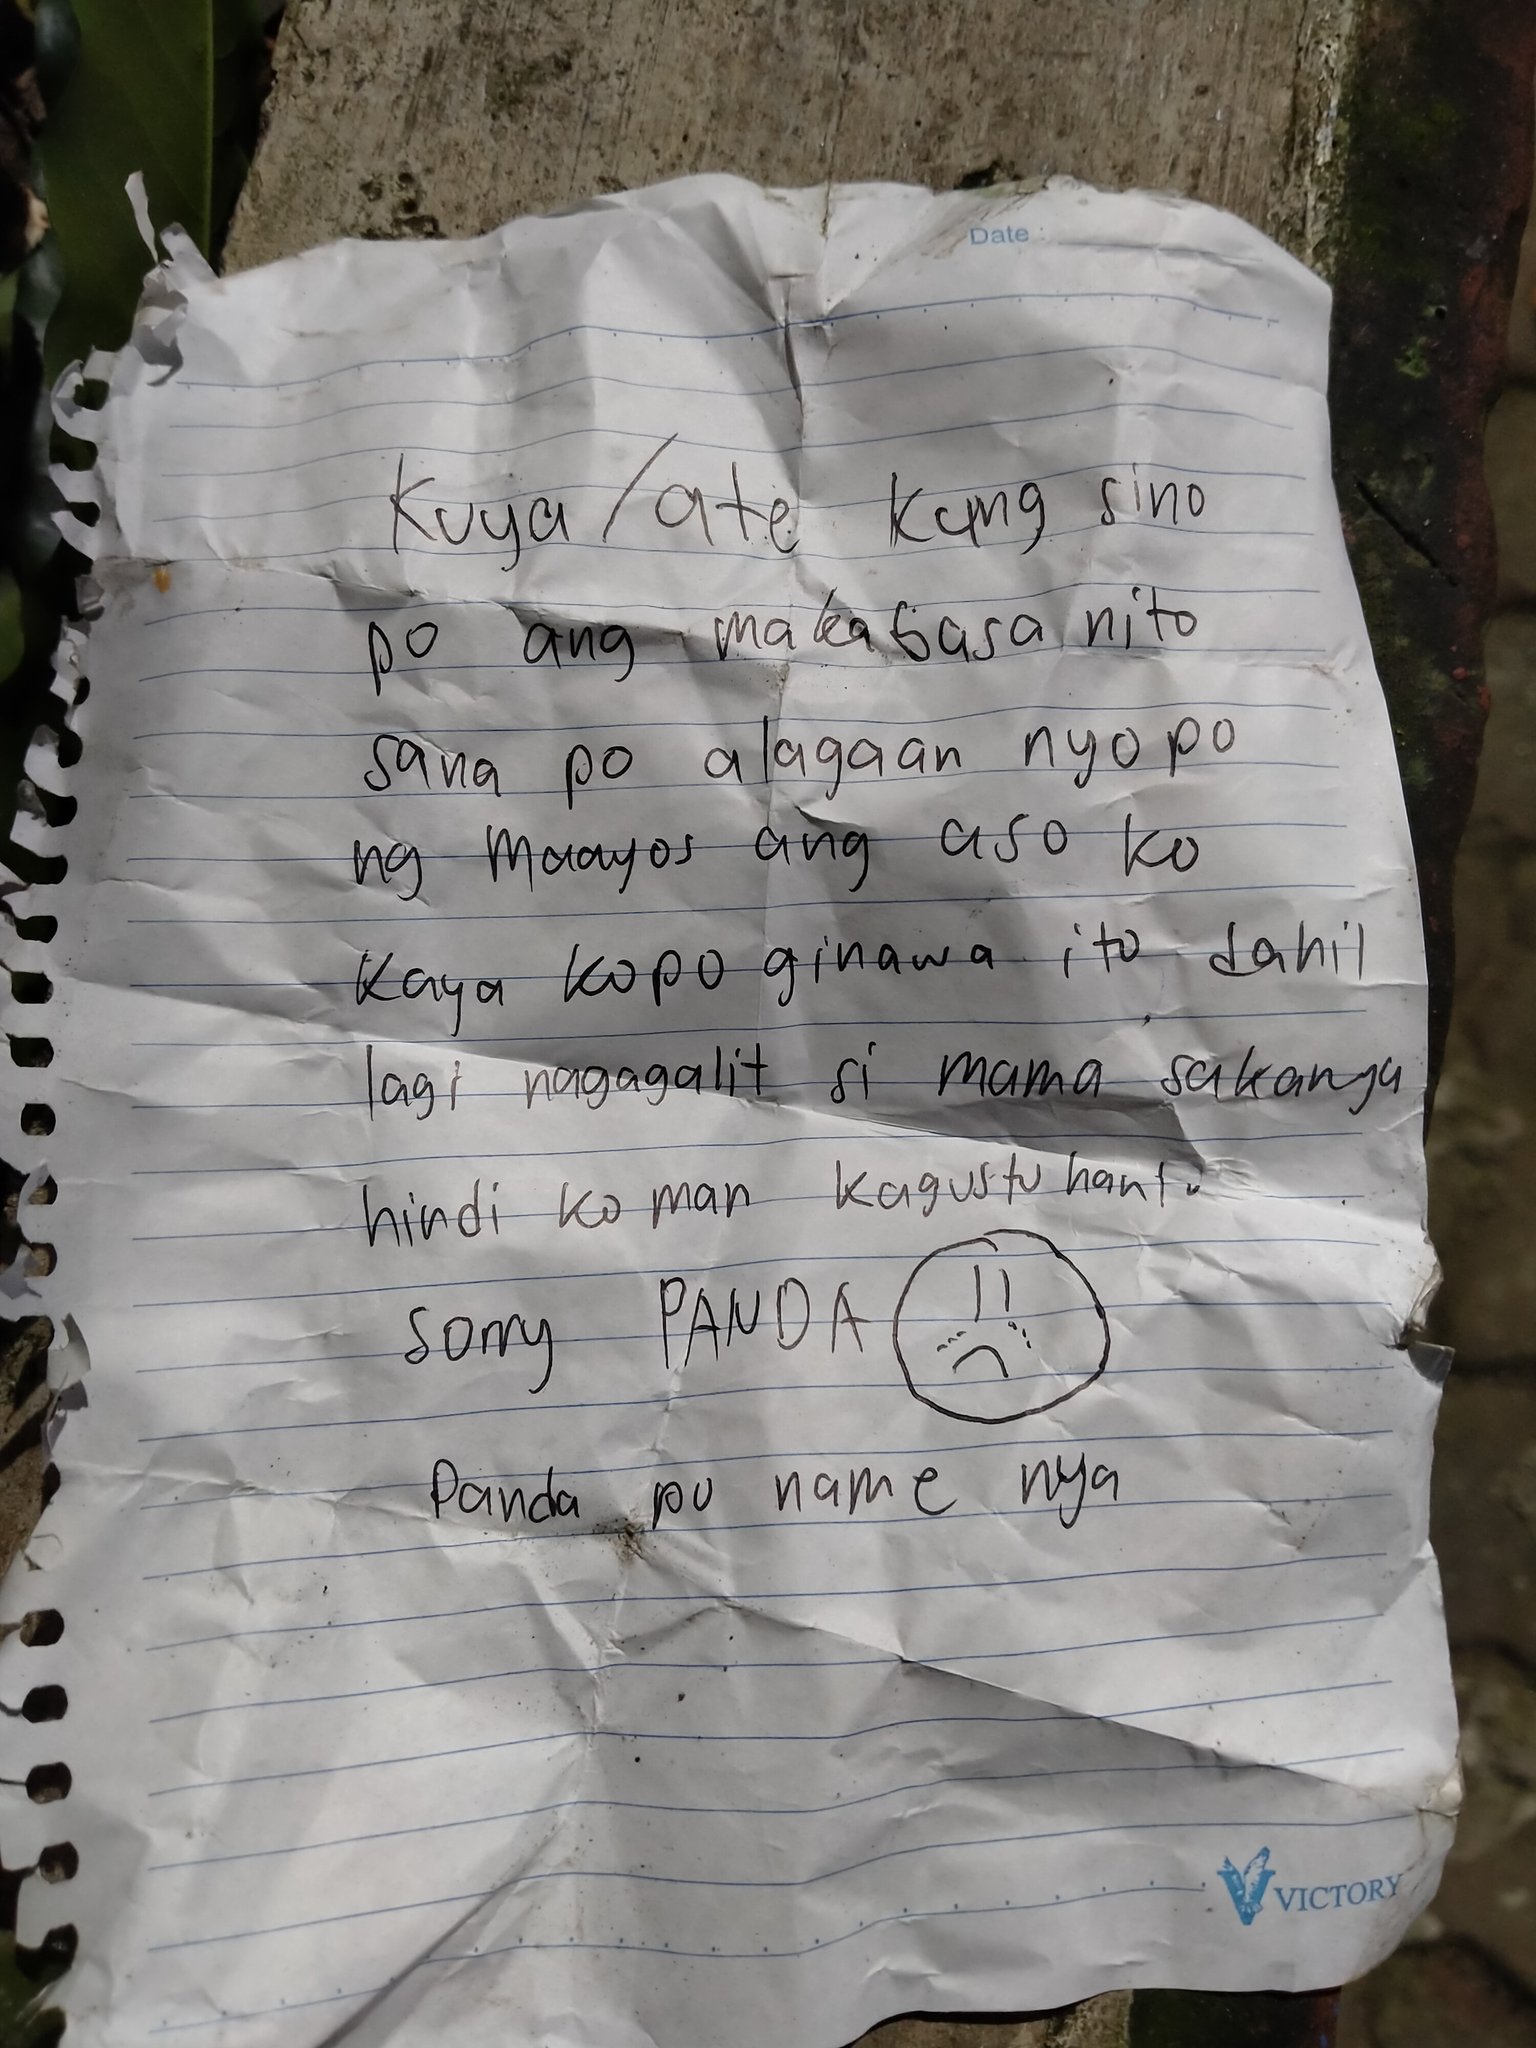 Date :
Kuya/ate kung sino
po ang makabasa nito
sana po alagaan nyo po
ng maayos ang aso ko
Kaya kopo ginawa ito dahil
lagi nagagalit si mama sakanya
hindi ko man kagustuhant.
sorry PANDA
Panda po name nya
VICTORY